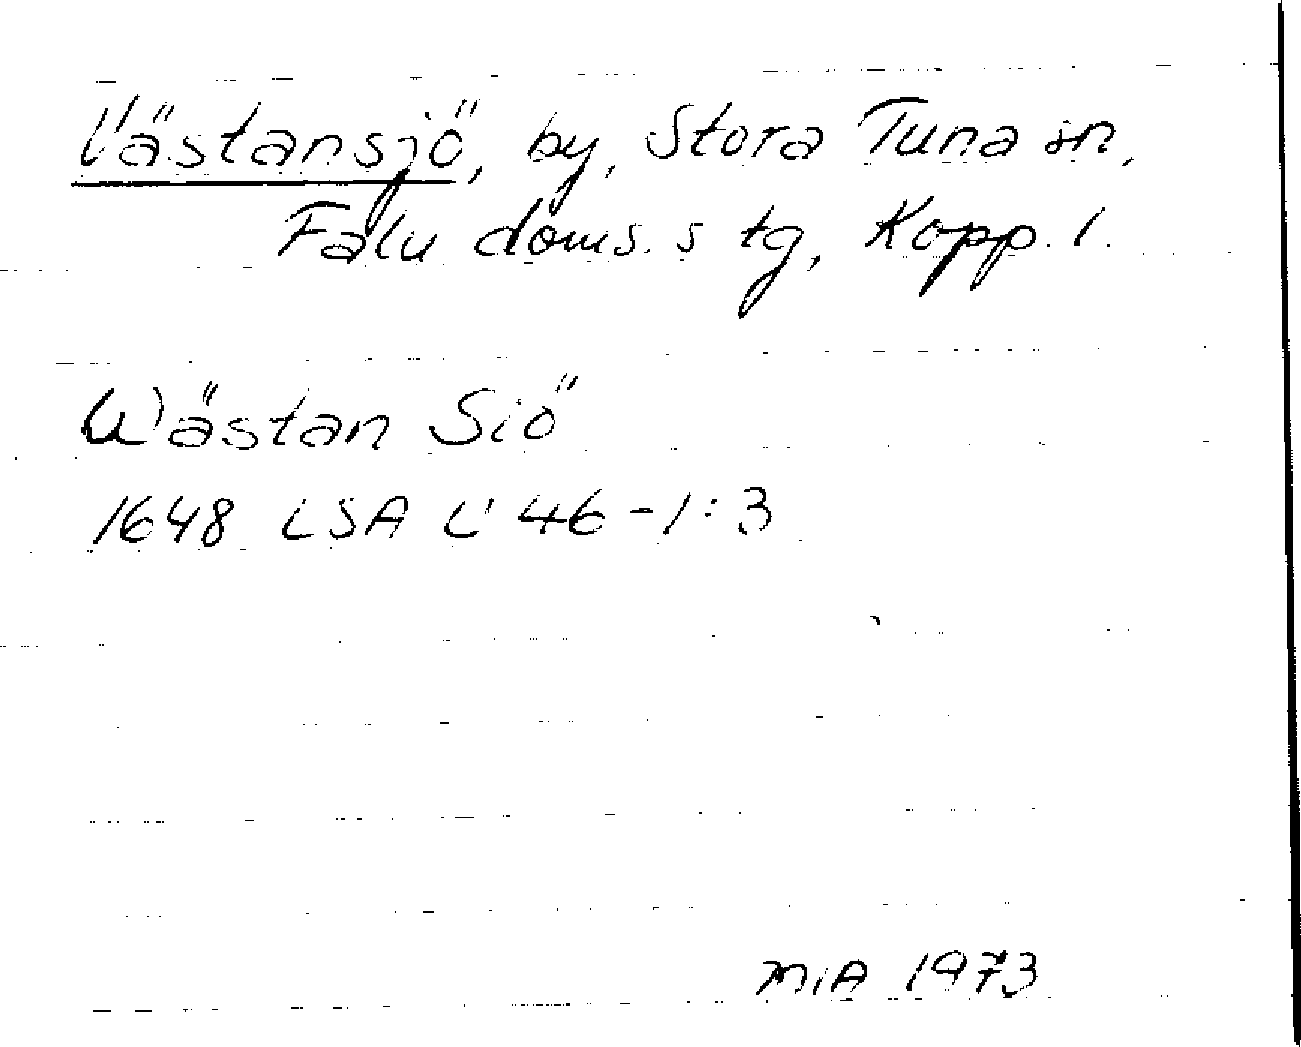 Västansjö, by, Stora Tuna sn,
Falu doms. s tg, Kopp. l.
Wästan Siö
1648 LSA U 46-1:3
MIA 1973